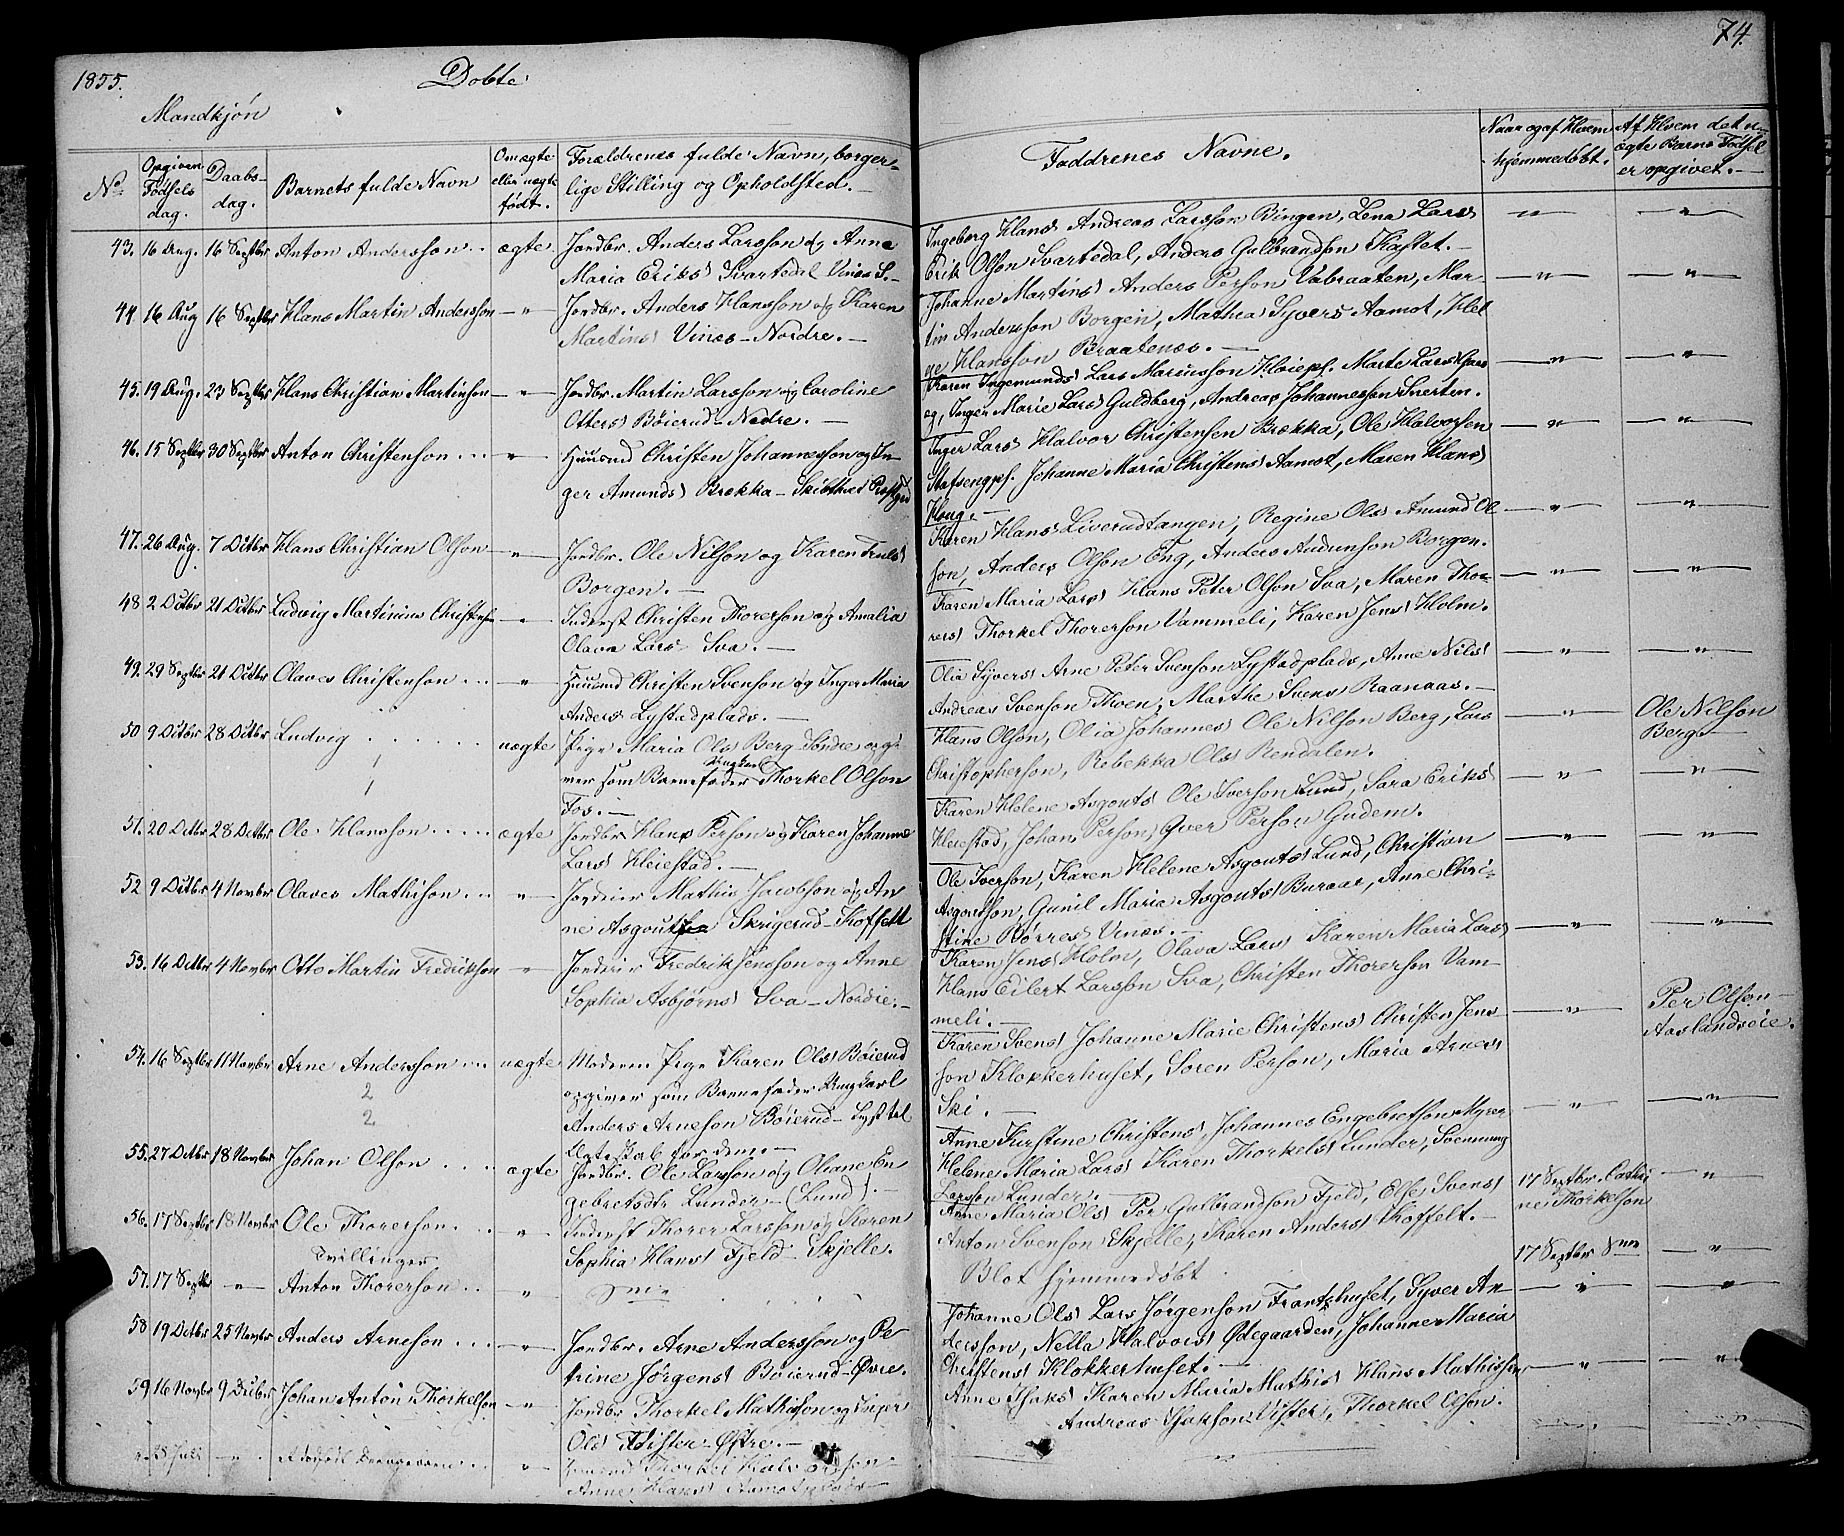 1855.
Døbte
74.
Mandkjøn
No
Opgiven Fødsels dag.
Daabs dag.
Barnets fulde Navn
Om ægte eller uægte født.
Forældrenes fulde Navn, borgerlige Stilling og Opholdsted.
Faddrenes Navne.
Naar og af Hvem hjemmedøbt.
Af Hvem det uægte Barns Fødsel er opgivet.
43. 16 Aug. 16 Septbr Anton Andersson .. ægte Jordbr. Anders Larsson og Anne
Maria Eriksd Svartedal Vinæs S.
Ingeborg Hansd Andreas Larsson Bingen, Lena Larsd
Erik Olson Svartedal, Anders Gulbrandson Kastet.
44. 16 Aug 16 Septbr Hans Martin Andersson — " — Jordbr. Anders Hansson og Karen
Martinsd Vinæs – Nordre.
Johanne Martinsd Anders Person Vabraaten, Mar-
tin Andersson Borgen, Mathea Syvers Aamot, Hel
ge Hansson Braatenæs.
45. 19 Aug. 23 Septbr Hans Christian Martinson — " — Jordbr. Martin Larsson og Caroline
Ottersd Bøierud – Nedre.
Karen Ingemundsd Lars Mariusson Høiepl. Marte Larsd
Inger Marie Larsd Guldberg, Andreas Johannesson Snerten.
46. 15 Septbr 30 Septbr Anton Christenson ... — " — Huusmd Christen Johannesson og In-
ger Amundsd Brekka – Skibthvet Præstgjd
Inger Larsd Halvor Christensen Brekka, Ole Halvorsen
Stafsengpl. Johanne Maria Christensd Aamot, Maren Hansd
Houg.
47. 26 Aug. 7 Octbr Hans Christian Olson — " — Jordbr. Ole Nilson og Karen
Borgen.
Karen Hansd Liverudtangen, Regine Olsd Amund Ol
son, Anders Olson Eng, Anders Audunson Borgen.
48 2 Octbr 21 Octbr Ludvig Martinius Christenson — " — Inderst Christen Thorerson og Amalia
Olava Larsd Sva.
Karen Maria Larsd Hans Peter Olson Sva, Maren Tho-
rersd Thorkel Thorerson Vammeli, Karen Jensd Holm.
49. 29 Septbr 21 Octbr Olaves Christenson ... " Huusmd Christen Svenson og Inger Maria
Andersd Lystadplads.
Olia Syversd Arne Peter Svenson Lystadplads, Anne Nilsd
Andreas Svenson Thoen, Marthe Svensd Raanaas.
50 9 Octbr 28 Octbr Ludvig ...... uægte Pige Maria Olsd Berg Søndre opgi-
1
ver som Barnefader Ungkarl Thorkel Olson
1
Fos.
Hans Olson, Olia Johannesd Ole Nilson Berg, Lars
Christopherson, Rebekka Olsd Rendalen.
Ole Nilson
Berg.
51. 20 Octbr 28 Octbr Ole Hansson ..... ægte Jordbr Hans Person og Karen Johanne
Larsd Heiestad.
Karen Helene Asgoutsd Ole Iverson Lund, Sara Eriksd
Heiestad, Johan Person, Gver Person Gudem.
52 9 Octbr 4 Novmbr Olaves Mathison ... " Jordeier Mathis Jacobson og An
ne Asgoutsen Skrigerud – Koffelt
Ole Iverson, Karen Helene Asgoutsd Lund, Christian
Asgoutson, Gunil Maria Asgoutsd Buraas, Anne Chri-
stine Børresd Vinæs.
53. 16 Octbr 4 Novmbr Otto Martin Fredrikson " Jordeier Fredrik Jensson og Anne
Sophia Asbjørnsd Sva – Nordre.
Karen Jensd Holm, Olava Larsd Karen Maria Larsd
Hans Eilert Larsson Sva, Christen Thorerson Vam-
meli.
54. 16 Septbr 11 Novmbr Arne Andersson ... uægte Moderen Pige Karen Olsd Bøierud
2
opgiver som Barnefader Ungkarl
2
Anders Arneson Bøierud – Lyst til
Ægteskab for dem.
Karen Svensd Johanne Marie Christensd Christen Jens
son Klokkerhuset, Soren Person, Maria Arnesd
Ski.
Per Olson
Aaslandsøie.
55. 27 Octbr 18 Novmbr Johan Olson .... ægte Jordbr. Ole Larsson og Oliane En
gebretsdtr Lunder – (Lund).
Anne Kirstine Christensd, Johannes Engebretson Myrer
Helene Maria Larsd Karen Thorkelsd Lunder, Svennung
Larsson Lunder.
56. 17 Septbr 18 Novmbr Ole Thorerson. .. " Inderst Thorer Larsson og Karen
Tvillinger
Sophia Hansd Fjeld – Skjelle.
Anne Maria Olsd Per Gulbrandson Fjeld, Else Svensd
Anton Svenson Skjelle, Karen Andersd Koffelt.
17 Septbr. Cathri
ne Thorkelson
57. 17 Septbr — " — Anton Thorerson .. "
Blot hjemmedøbt
17 Septbr
58 19 Octbr 25 Novmbr Anders Arneson ... — " — Jordbr. Arne Andersson og Pe-
trine Jørgensd Bøierud – Øvre.
Johanne Olsd Lars Jørgenson Frantshuset, Syver An-
dersson, Nella Halvorsd Ødegaarden, Johanne Maria
Christensd Klokkerhuset.
59. 16 Novmbr 9 Decbr Johan Anton Thorkelson — " — Jordbr Thorkel Mathisson og Inger
Olsd Vister – Østre.
Anne Isaksd Karen Maria Mathisd Hans Mathisson
Andreas Isakson Vister, Thorkel Olson.
28 Juli — " — " Huusmd Thorkel Halvorson
Anne Hansd